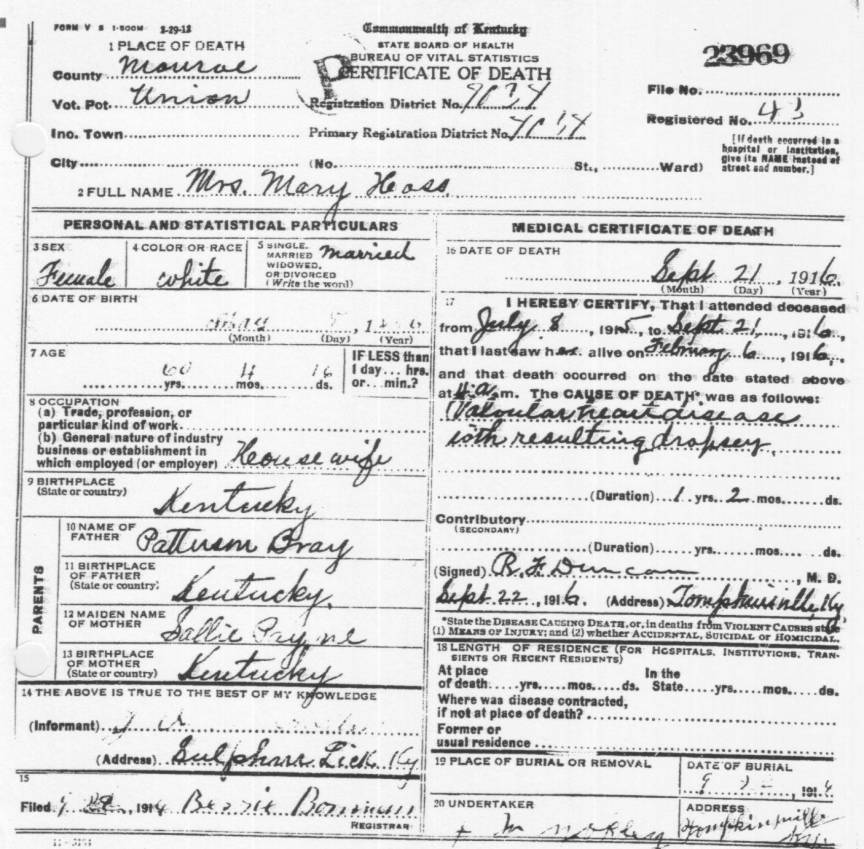 FORM V S 1-500M 2-29-12
Commonwealth of Kentucky
STATE BOARD OF HEALTH
BUREAU OF VITAL STATISTICS
CERTIFICATE OF DEATH
23969
1 PLACE OF DEATH
County Monroe
Vot. Pct. Union
Inc. Town
City (No. St., Ward)
Registration District No.
Primary Registration District No.
File No.
Registered No. 43
[If death occurred in a hospital or institution, give its NAME instead of street and number.]
2 FULL NAME Mrs. Mary Hoss
PERSONAL AND STATISTICAL PARTICULARS
3 SEX
Female
4 COLOR OR RACE
white
5 SINGLE, MARRIED WIDOWED, OR DIVORCED (Write the word)
married
6 DATE OF BIRTH
May
(Month) (Day) (Year)
7 AGE
60 yrs. 4 mos. 16 ds.
IF LESS than
1 day... hrs.
or... min.?
8 OCCUPATION
(a) Trade, profession, or
particular kind of work.
(b) General nature of industry
business or establishment in
which employed (or employer) Housewife
9 BIRTHPLACE
(State or country)
Kentucky
PARENTS
10 NAME OF FATHER
Patterson Bray
11 BIRTHPLACE OF FATHER
(State or country)
Kentucky.
12 MAIDEN NAME OF MOTHER
Sallie Payne
13 BIRTHPLACE OF MOTHER
(State or country)
Kentucky
14 THE ABOVE IS TRUE TO THE BEST OF MY KNOWLEDGE
(Informant)
(Address) Sulphur Lick Ky
15
Filed 9 22, 1916 Bessie Bowman
REGISTRAR
MEDICAL CERTIFICATE OF DEATH
16 DATE OF DEATH
Sept 21, 1916.
(Month) (Day) (Year)
17 I HEREBY CERTIFY, That I attended deceased
from July 8, 1915, to Sept. 21, 1916,
that I last saw her alive on February 6, 1916,
and that death occurred on the date stated above
at 4 a m. The CAUSE OF DEATH* was as follows:
Valvular heart disease
with resulting dropsey.
(Duration) 1 yrs. 2 mos. ds.
Contributory
(SECONDARY)
(Duration) yrs. mos. ds.
(Signed) R. F. Duncan, M. D.
Sept 22, 1916 (Address) Tompkinsville, Ky.
*State the DISEASE CAUSING DEATH, or, in deaths from VIOLENT CAUSES state
(1) MEANS OF INJURY; and (2) whether ACCIDENTAL, SUICIDAL or HOMICIDAL.
18 LENGTH OF RESIDENCE (FOR HOSPITALS, INSTITUTIONS, TRANSIENTS OR RECENT RESIDENTS)
At place of death yrs. mos. ds. In the State yrs. mos. ds.
Where was disease contracted,
if not at place of death?
Former or
usual residence
19 PLACE OF BURIAL OR REMOVAL
DATE OF BURIAL
1916
20 UNDERTAKER
ADDRESS
Tompkinsville
Ky.